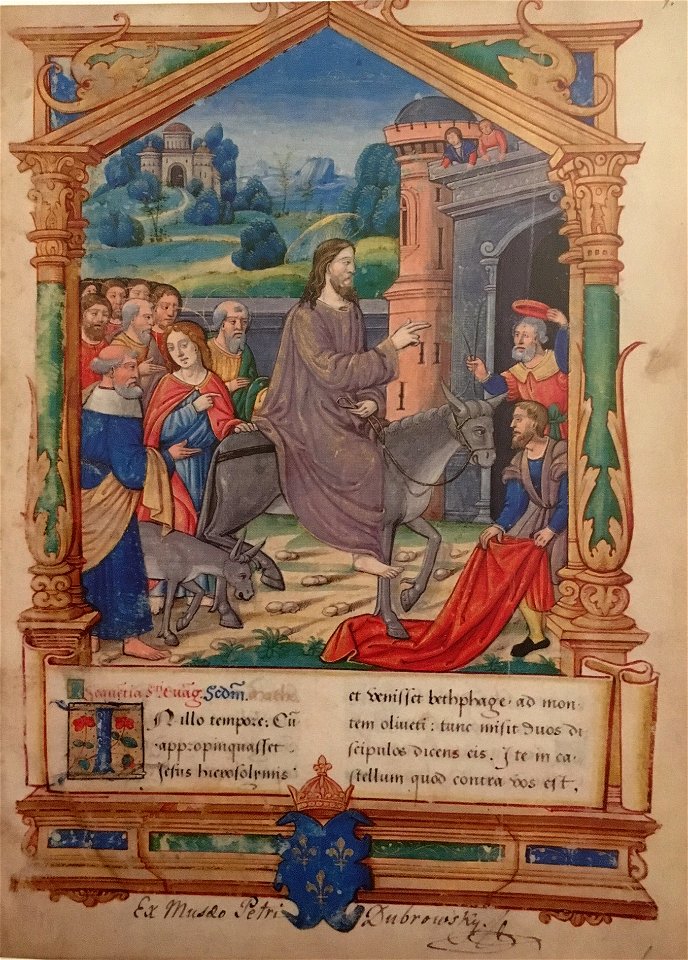 Sequentia Sti Euāg. Scdm. Mathe
IN illo tempore: Cū
appropinquasset
Jesus hierosolymis
et venisset bethphage. ad mon-
tem oliveti: tunc misit duos di
scipulos dicens eis. Ite in ca-
stellum quod contra vos est,
Ex Musæo Petri Dubrowsky.